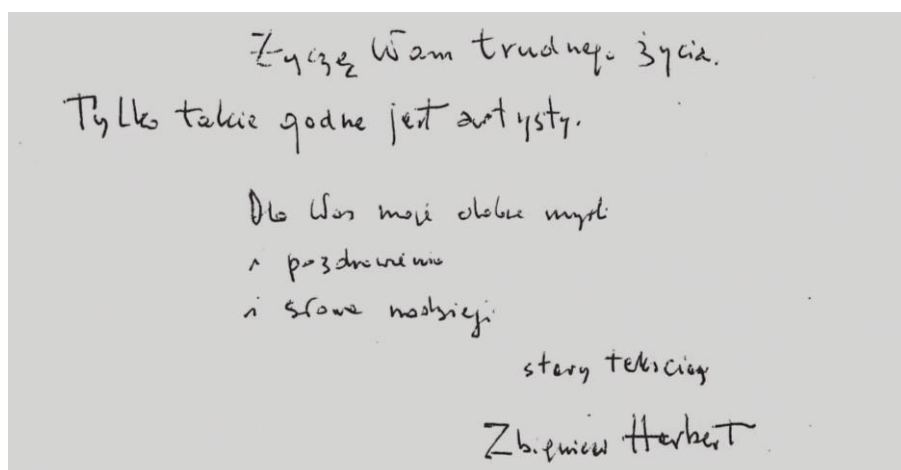 Życzę Wam trudnego życia.
Tylko takie godne jest artysty.
Dla Was moje dobre myśli
i pozdrowienia
i słowa nadziei
stary tekściarz
Zbigniew Herbert